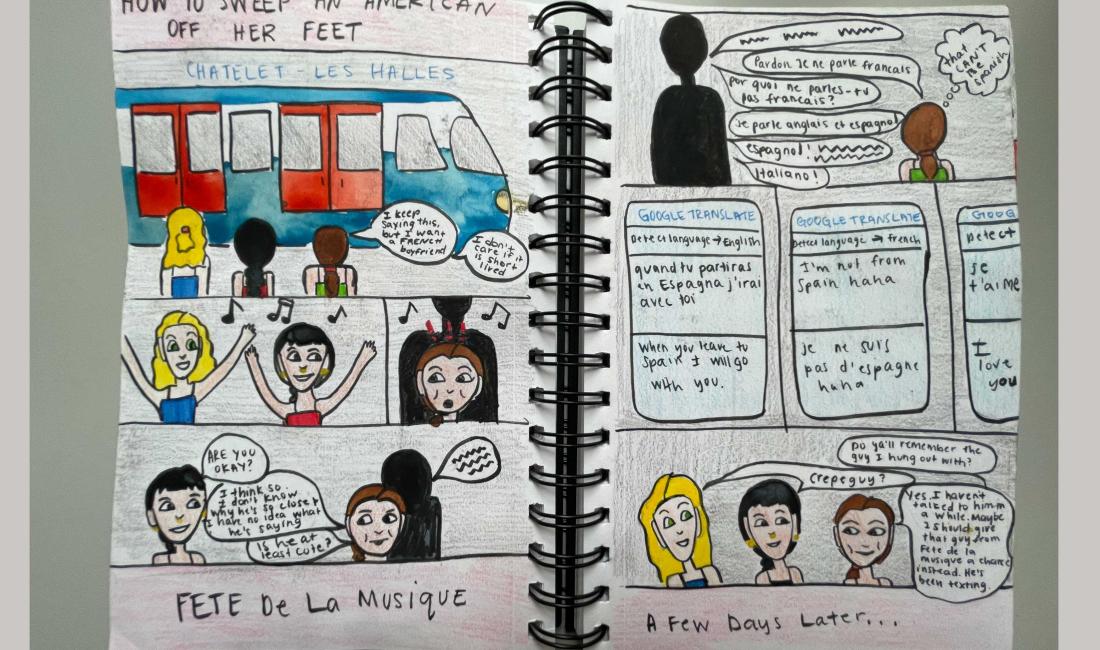 HOW TO SWEEP AN AMERICAN
OFF HER FEET
CHATELET - LES HALLES
I keep
saying this,
but I want
a FRENCH
boyfriend
I don't
care if it
is short
lived
ARE YOU
OKAY?
I think so.
I don't know
why he's so close
I have no idea what
he's saying
Is he at
least cute?
FETE De La MusiQUE
Pardon. Je ne parle francais
por quoi ne parles-tu
pas francais?
Je parle anglais et espagnol
espagnol!
Italiano!
that
CAN'T
be
spanish
GOOGLE TRANSLATE
Detect language → English
quand tu partiras
en Espagna j'irai
avec toi
when you leave to
Spain I will go
with you.
GOOGLE TRANSLATE
Detect language → french
I'm not from
Spain haha
je ne suis
pas d'espagne
haha
GOOG
Detect
Je
t'aime
I
love
you
Do ya'll remember the
guy I hung out with?
Crepe guy?
Yes. I haven't
talked to him in
a while. Maybe
I should give
that guy from
Fete de la
musique a chance
instead. He's
been texting.
A Few Days Later...